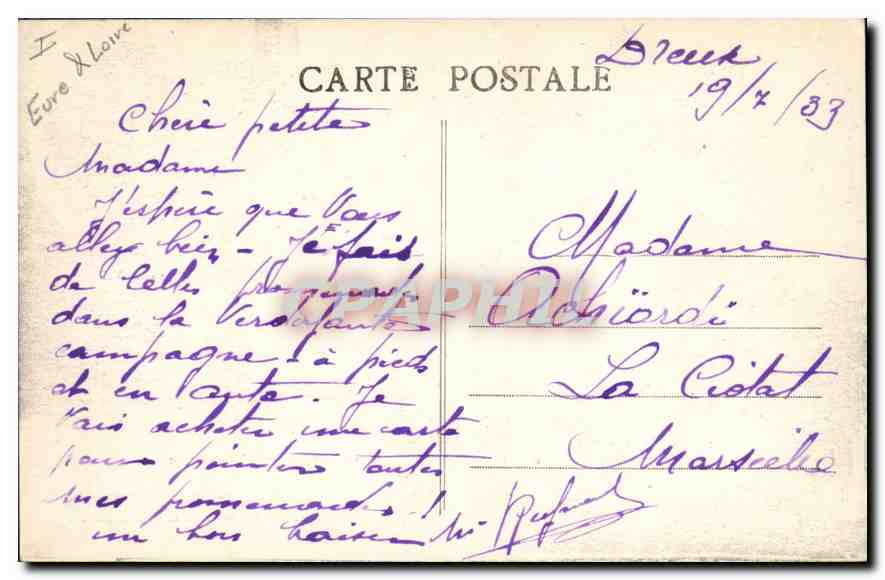 I
Eure & Loire
CARTE POSTALE
Dreux
19/7/33
Chère petite
Madame
J'espère que Vous
allez bien - Je fais
de belles promenades
dans la Verdoyante
campagne - à pieds
et en auto. Je
Vais acheter une carte
pour pointer toutes
mes promenades !
un bon baiser
Madame
Achïardi
La Ciotat
Marseille
CPAPHIL